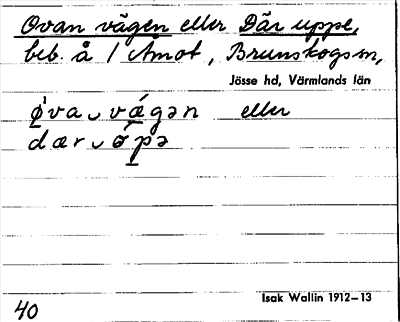 Ovan vägen eller Där uppe,
beb. å 1 Åmot, Brunskogs sn,
Jösse hd, Värmlands län
ǿva ᴗ vǽgən eller
dær ᴗ ǿpə
Isak Wallin 1912–13
40